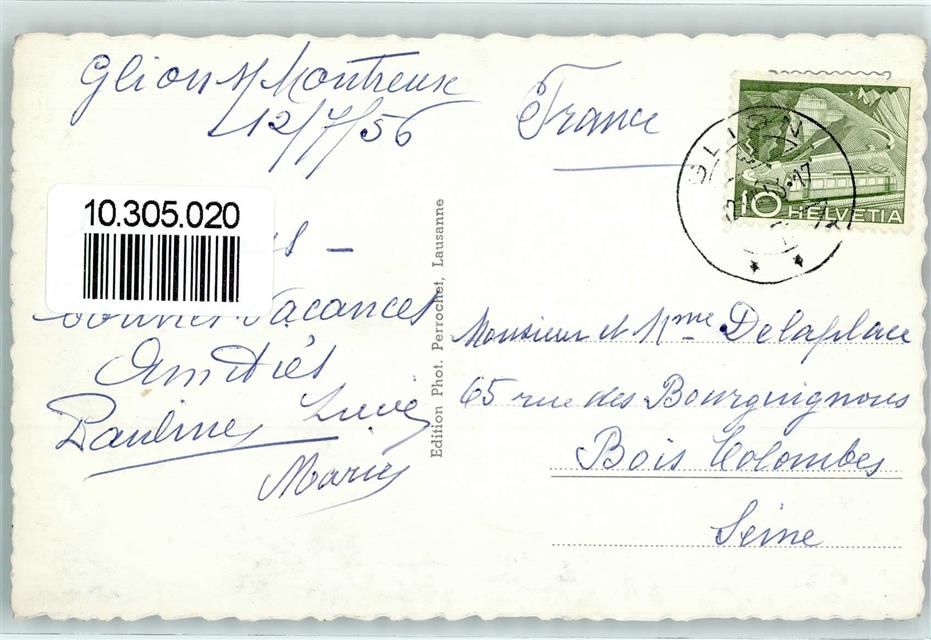 Glion s/Montreux
12/7/56
France
10.305.020
Vacances
Amitiés
Pauline Lucie
Marie
Edition Phot. Perrochet, Lausanne
GLION
10 HELVETIA
Monsieur et Mme Delaplace
65 rue des Bourguignons
Bois Colombes
Seine